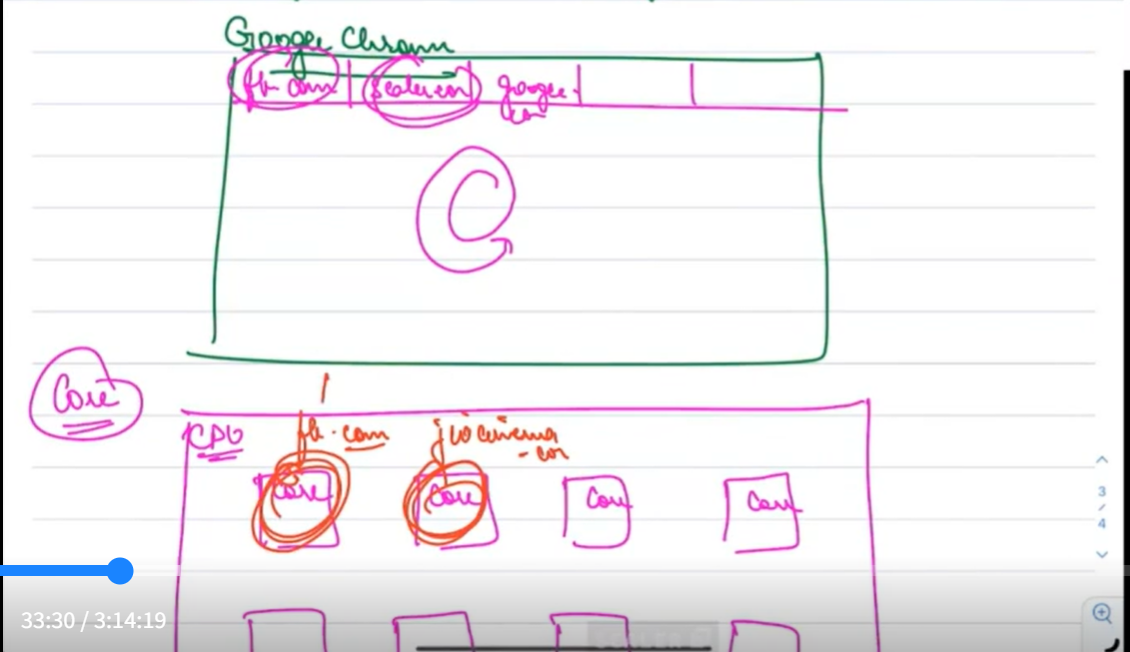 Google Chrom
fb.com scaler.com google.
com
Core
CPU fb.com jiocinema
.com
Core Core Core Core
3
/
4
33:30 / 3:14:19